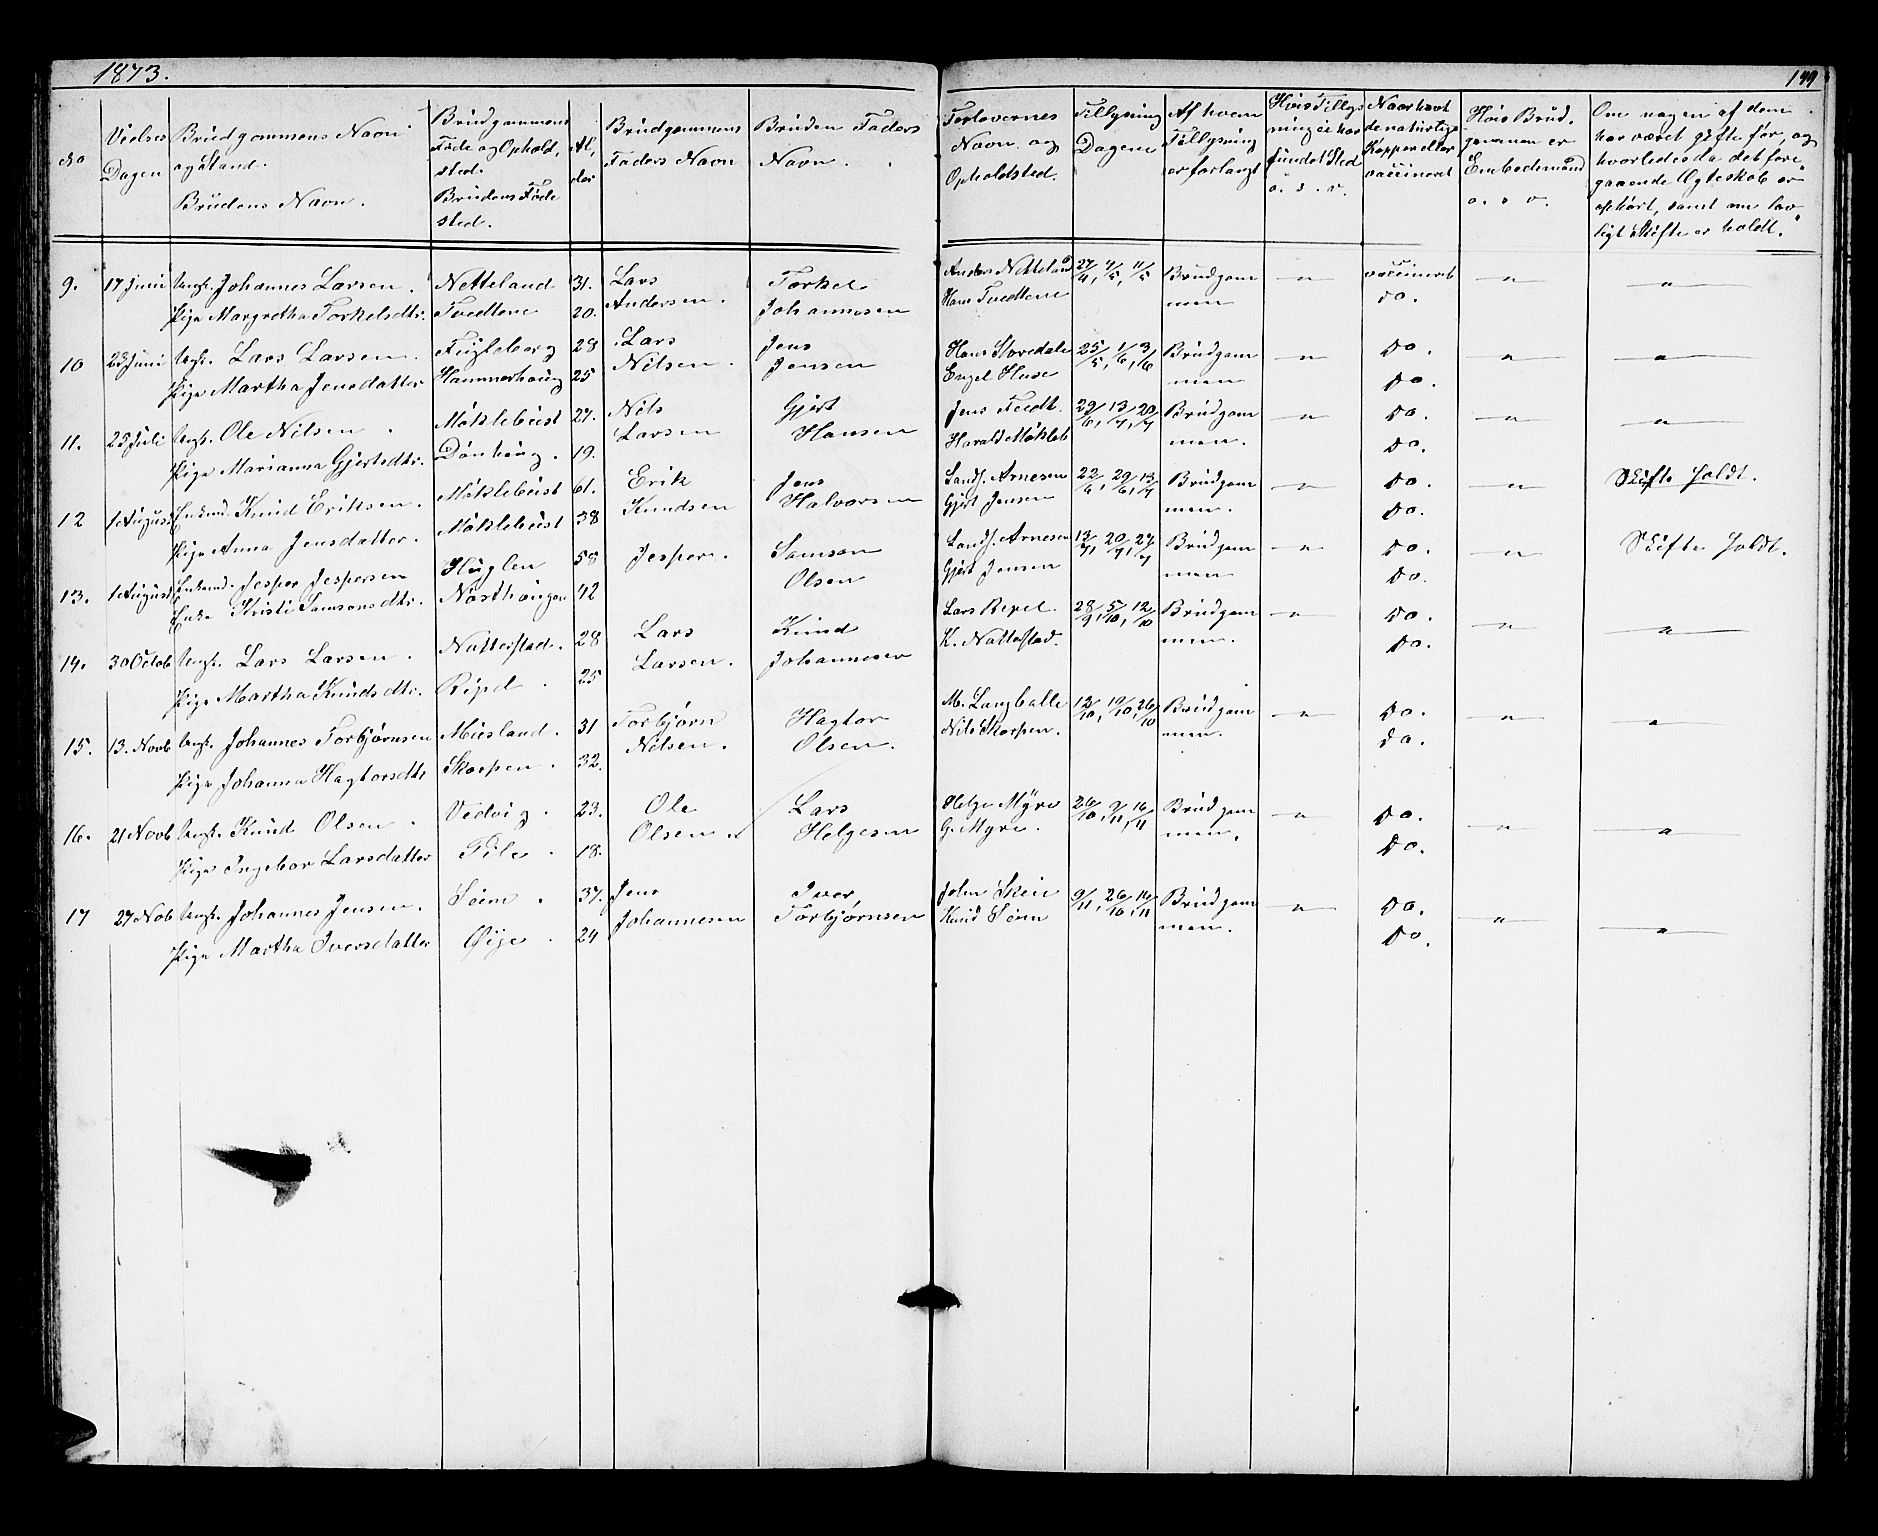 1873.
149
No
Vielses Dagen
Brudgommens Navn og Stand. Brudens Navn.
Brudgommens Føde og Opholdsted. Brudens Fødested.
Alder
Brudgommens Faders Navn
Brudens Faders Navn.
Forlovernes Navn og Opholdsted.
Tillysning Dagene
Af hvem Tillysning er forlangt
Hvis Tillysning ei har fundet Sted o. s. v.
Naar havt de naturlige Kopper eller vaccineret
Hvis Brudgommen er Embedsmand o. s. v.
Om nogen af dem har været gifte før, og hvorledes da det foregaaende Ægteskab er ophørt, samt om lovligt Skifte er holdt.
9. 17 Juni Ungk. Johannes Larsen. Netteland 31. Lars Torkel Anders Netteland 27/4, 4/5, 11/5 Brudgom vaccineret
Pige Margretha Torkelsdtr. Tvedtene 20. Andersen. Johannesen Hans Tvedtene men do.
10 23 Juni Ungk. Lars Larsen. Fugleberg 28 Lars Jens Hans Storedale 25/5, 1/6, 3/6 Brudgom Do.
Pige Martha Jensdatter Hammerhaug 25 Nilsen. Jensen Engel Huse men Do.
11. 25 Juli Ungk. Ole Nilsen. Møklebust 27. Nils Gjert Jens Tvedt. 29/6, 13/7, 20/7 Brudgom Do.
Pige Marianna Gjertsdtr. Dønhaug. 19. Larsen Hansen Harald Møkleb men. Do.
12 1 August Enkemd. Knud Eriksen. Møklebust 61. Erik Jens Landh. Arnesen 22/6, 29/6, 13/7 Brudgom Do. Skifte holdt.
Pige Anna Jensdatter. Møklebust 38 Knudsen Halvorsen Gjert Jensen men. Do.
13. 1 August Enkemd. Jesper Jespersen Huglen 58 Jesper. Samson Landh. Arnesen 13/7, 20/7, 27/7 Brudgom Do. Skifte holdt.
Enke Kristi Samsonsdtr. Nøsthaugen 42 Olsen Gjert Jensen men Do.
14. 30 Octob Ungk. Lars Larsen. Natterstad. 28 Lars Knud Lars Repel. 28/9, 5/10, 12/10 Brudgom Do.
Pige Martha Knudsdtr. Ripel. 25 Larsen. Johannesen K. Nattestad. men. Do.
15. 13. Novb Ungk. Johannes Torbjørnsen Musland. 31 Torbjørn Hagtor M. Langballe 12/10, 19/10, 26/10 Brudgom Do.
Pige Johanna Hagtorsdtr Skorpen. 32. Nilsen. Olsen. Nils Skorpen. men. Do.
16. 21 Novb Ungk. Knud Olsen. Vedvig. 23. Ole Lars Helge Myre 26/10, 9/11, 16/11 Brudgom Do.
Pige Ingebor Larsdatter Tile. 18. Olsen. Helgesen G. Myre. men. Do.
17 27 Nob Ungk. Johannes Jensen. Søim. 37. Jens Iver John Skeie 9/11, 26/10, 16/11 Brudgom Do.
Pige Martha Iversdatter Øije. 24 Johannesen Torbjørnsen Knud Søim men. Do.